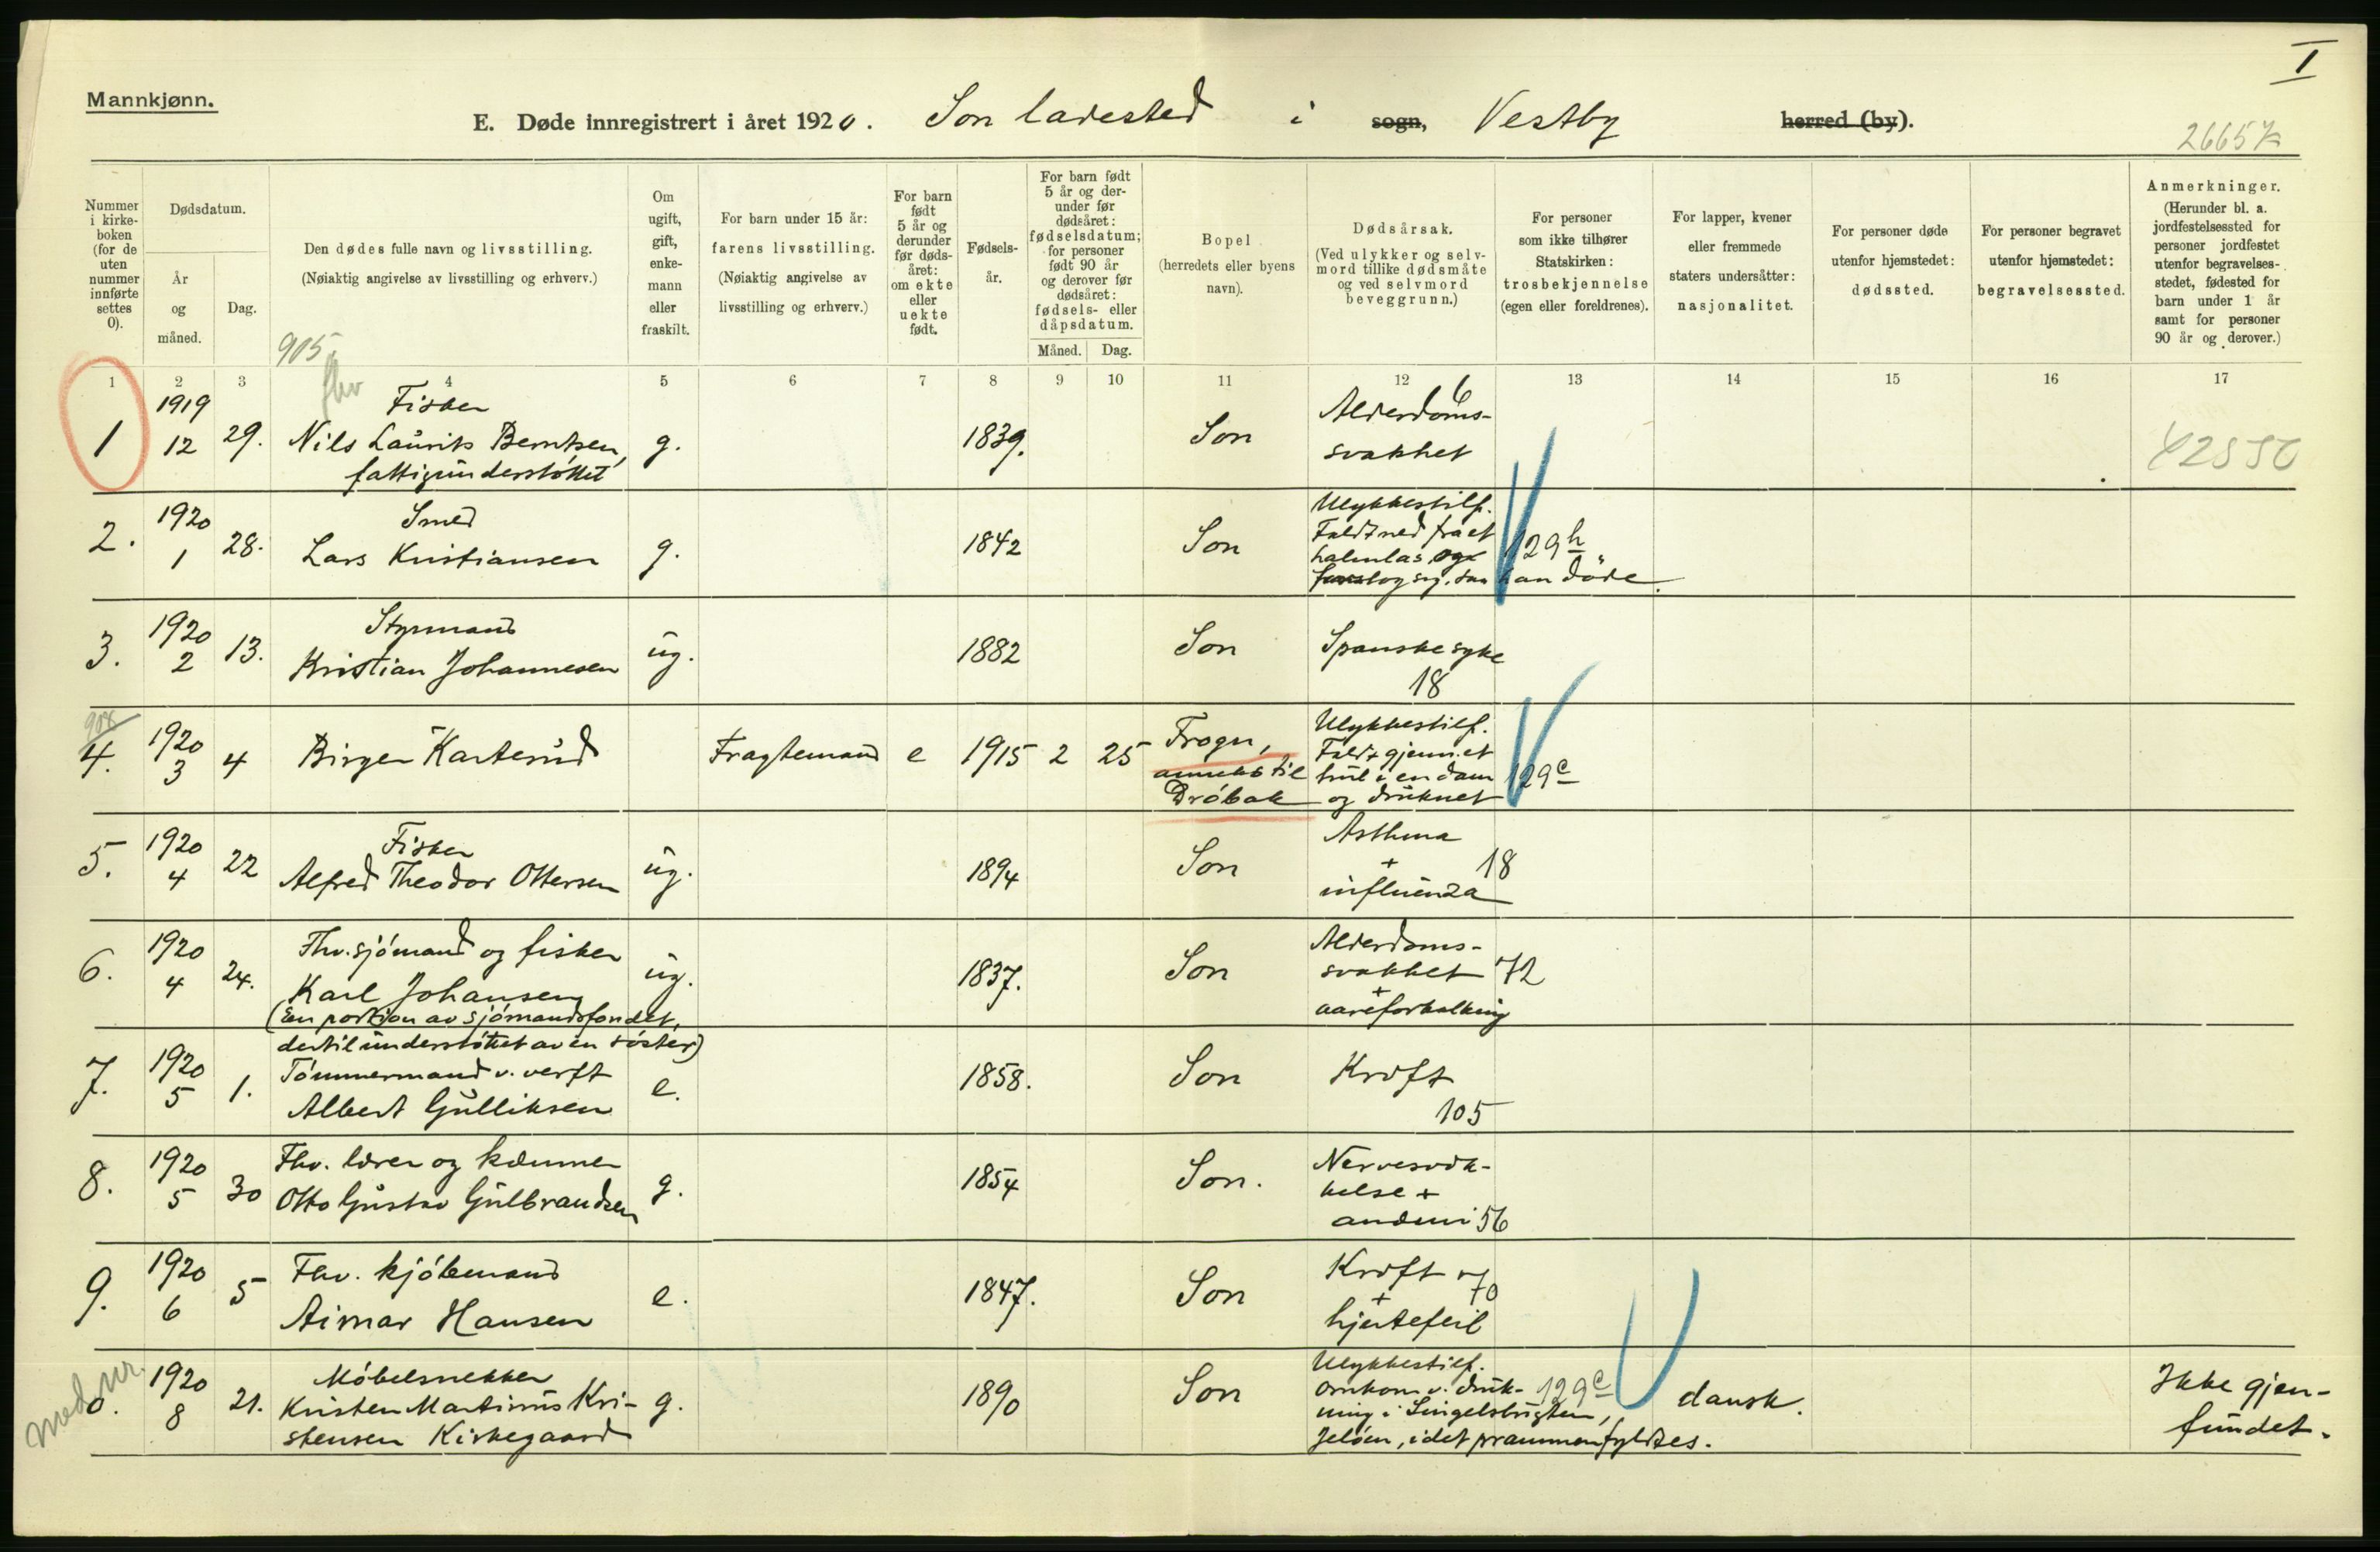 I
Mannkjønn.
E. Døde innregistrert i året 1920. Son ladested i sogn, Vestby herred (by).
26657
Nummer i kirke-boken (for de uten nummer innførte settes 0).
Dødsdatum.
År og måned.
Dag.
Den dødes fulle navn og livsstilling.
(Nøiaktig angivelse av livsstilling og erhverv.)
Om ugift, gift, enke-mann eller fraskilt.
For barn under 15 år:
farens livsstilling.
(Nøiaktig angivelse av livsstilling og erhverv.)
For barn født 5 år og derunder før døds-året: om ekte eller uekte født.
Fødsels-år.
For barn født 5 år og der-under før dødsåret: fødselsdatum; for personer født 90 år og derover før dødsåret: fødsels- eller dåpsdatum.
Måned.
Dag.
Bopel
(herredets eller byens navn).
Dødsårsak.
(Ved ulykker og selv-mord tillike dødsmåte og ved selvmord beveggrunn.)
For personer som ikke tilhører Statskirken: trosbekjennelse (egen eller foreldrenes).
For lapper, kvener eller fremmede staters undersåtter: nasjonalitet.
For personer døde utenfor hjemstedet: dødssted.
For personer begravet utenfor hjemstedet: begravelsessted.
Anmerkninger.
(Herunder bl. a. jordfestelsessted for personer jordfestet utenfor begravelses-stedet, fødested for barn under 1 år samt for personer 90 år og derover.)
905
1 2 3 4 5 6 7 8 9 10 11 12 13 14 15 16 17
fhv
1919 Fisker Alderdoms- 6
1 12 29. Nils Laurits Berntsen, g. 1839. Son svakhet
fattigunderstøttet
1920 Smed Ulykkestilf.
2. 1 28. Lars Kristiansen g. 1842 Son Faldt ned fra et 129 h
halmlas og
slog sig, saa han døde.
1920 Styrmand
3. 2 13. Kristian Johannesen ug. 1882 Son Spanske syke
18
908
1920 Frogn, Ulykkestilf.
4. 3 4 Birger Karterud Fragtemand e 1915 2 25 anneks til Faldt gjenn. et
Drøbak hul i en dam 129 c
og druknet
1920 Fisker Asthma
5. 4 22 Alfred Theodor Ottersen ug. 1894 Son + 18
influenza
1920 Fhv. sjømand og fisker Alderdoms-
6. 4 24. Karl Johansen ug. 1837. Son svakhet 72
(En portion av sjømandsfondet, + aareforkalkning
dertil understøttet av en søster)
1920 Tømmermand v. verft
7. 5 1. Albert Gulliksen e. 1858. Son Kræft
105
1920 Fhv. lærer og kæmner Nervesvæk-
8. 5 30 Otto Gustav Gulbrandsen g. 1854 Son. kelse +
anæmi 56
1920 Fhv. kjøbmand Kræft 70
9. 6 5 Aimar Hansen e. 1847. Son +
hjertefeil
med nr.
1920 Møbelsnekker Ulykkestilf.
0. 8 21. Kristen Martinus Kri- g. 1890 Son Omkom v. druk- 129 c dansk. Ikke gjen-
stensen Kirkegaard ning i fundet.
Jeløen, idet prammen fyldtes.